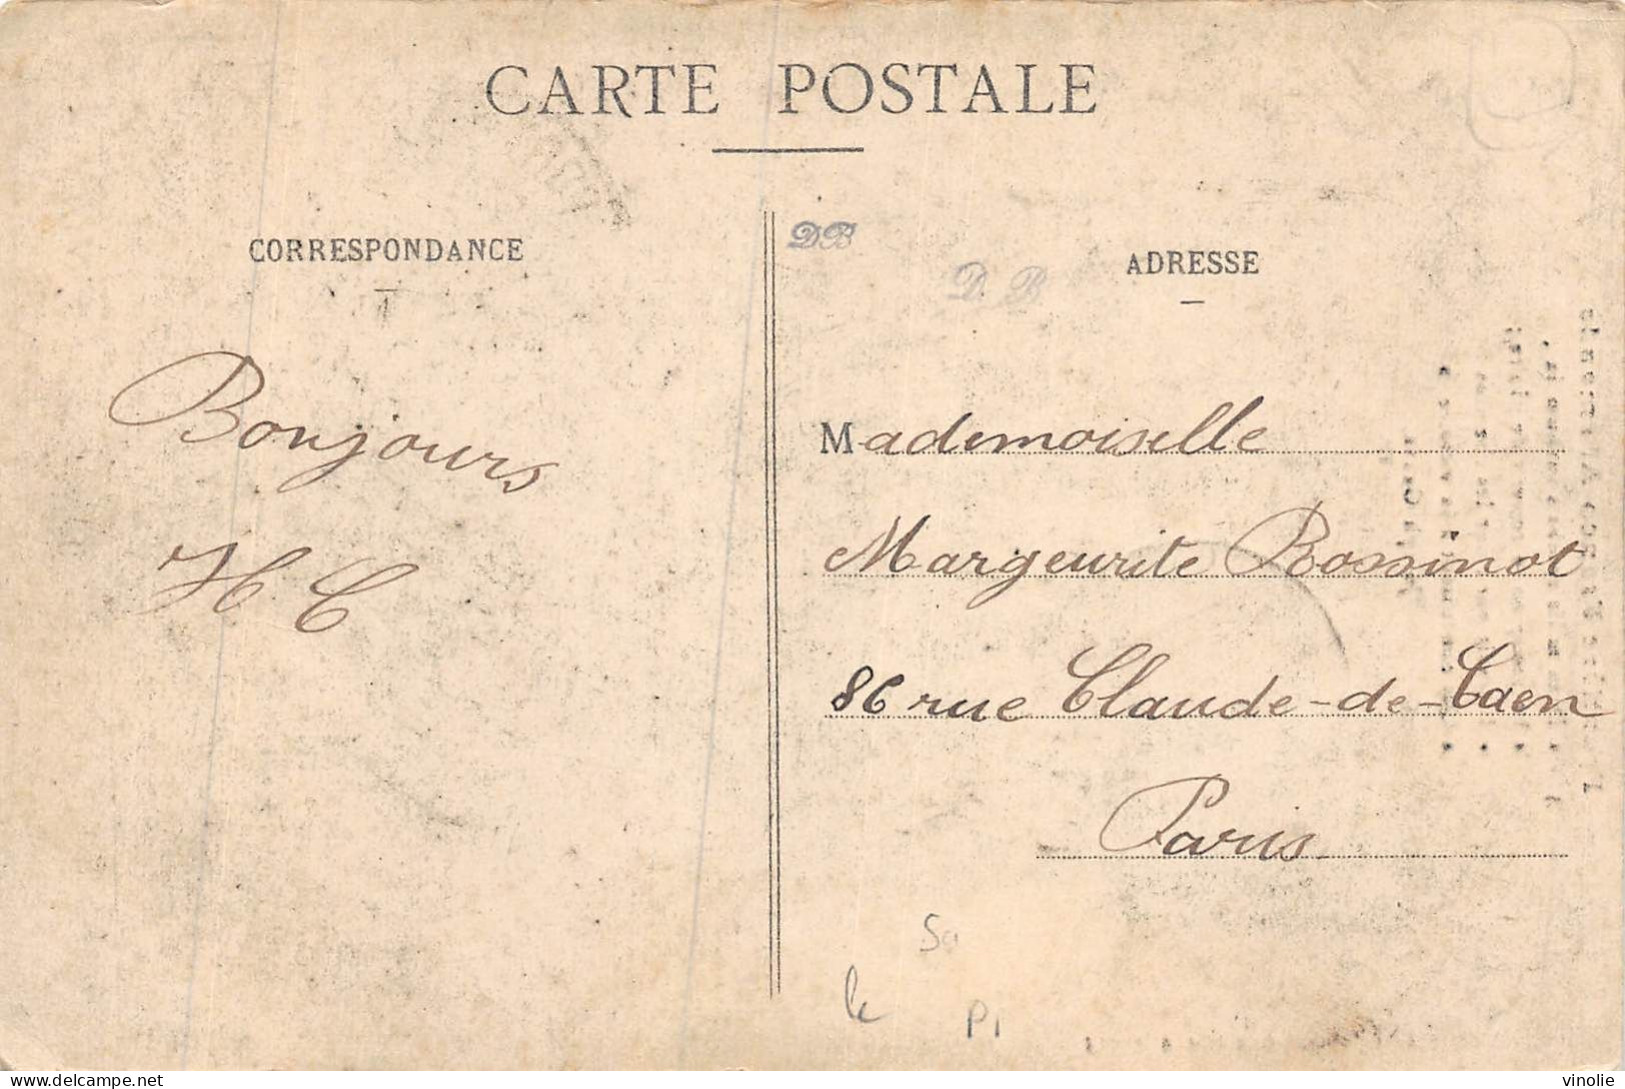 CARTE POSTALE
CORRESPONDANCE
Bonjours
H C
DB
D. B
ADRESSE
Mademoiselle
Margeurite Rossinot
86 rue Claude-de-Caen
Paris
P1
delcampe.net
vinolie